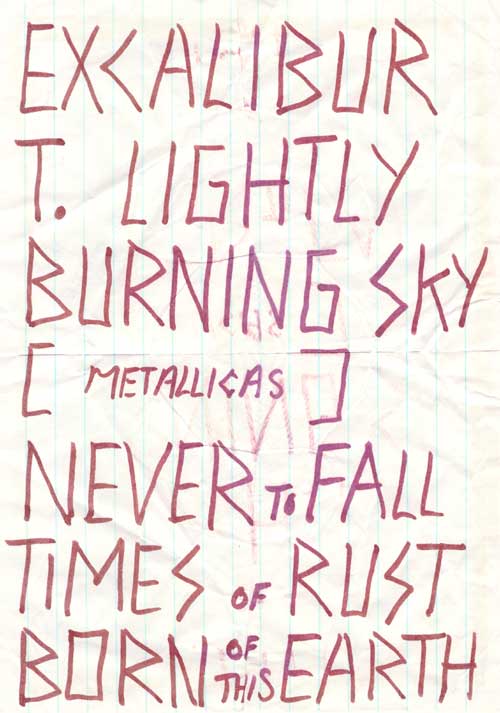 EXCALIBUR
T. LIGHTLY
BURNING SKY
[ METALLICAS ]
NEVER TO FALL
TIMES OF RUST
BORN OF THIS EARTH